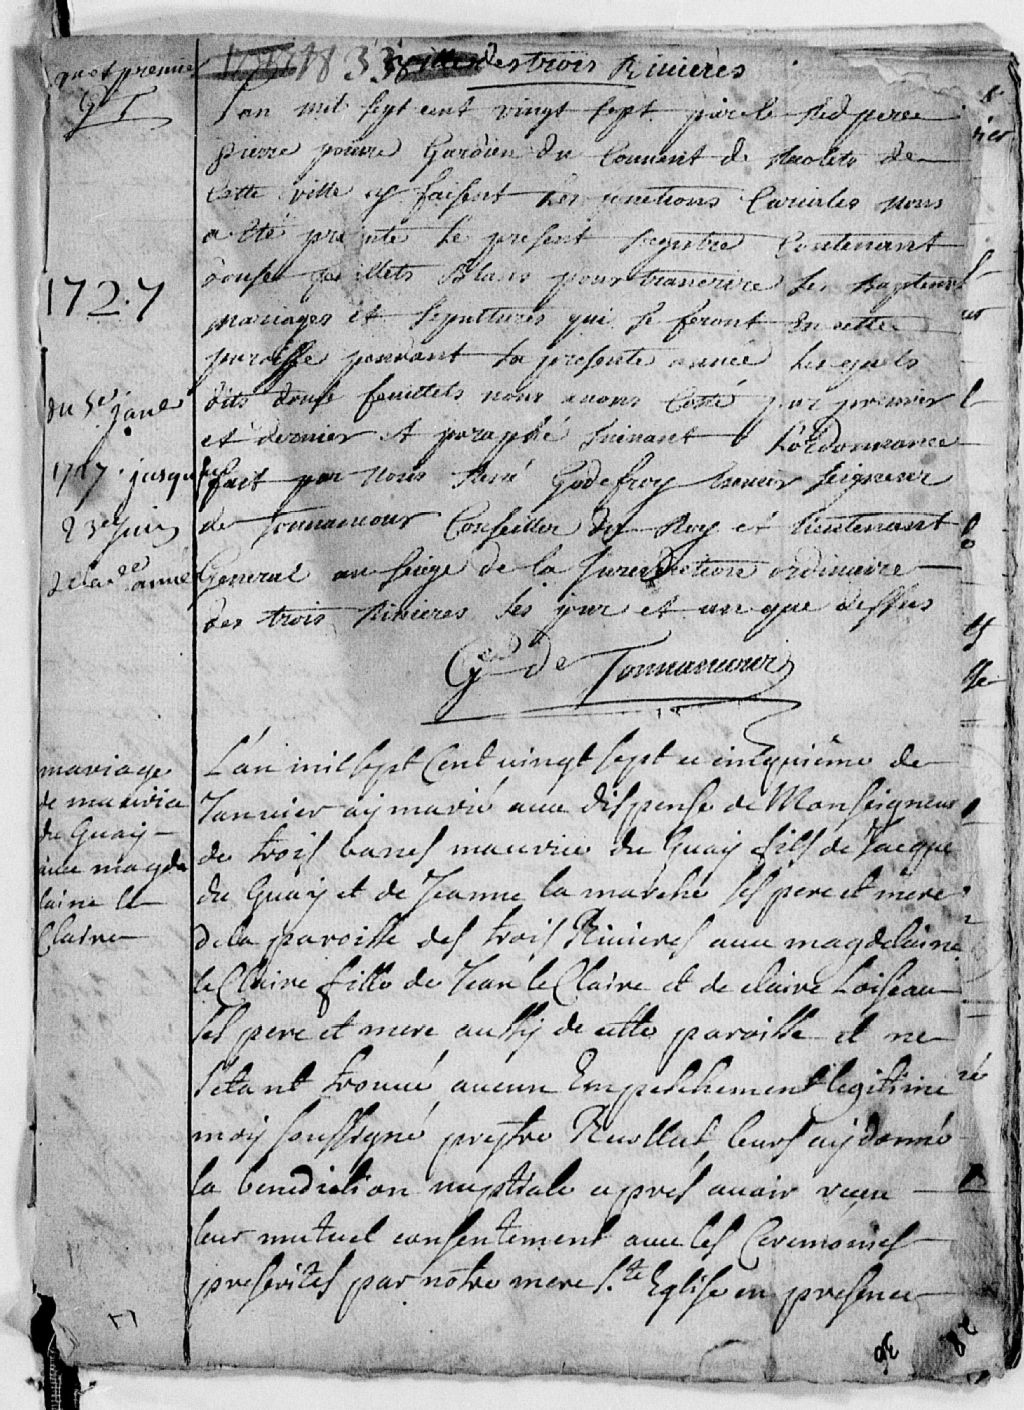 des trois Rivieres
L'an mil sept cent vingt sept par le Red pere
pierre Gardien du Couvent de Recolets de
Cette ville y faisant Les fonctions Curiales nous
a été presenté le present Registre Contenant
douse feuillets Blans pour transcrire les Baptemes
mariages et sepultures qui se feront En cette
paroisse pendant la presente année Les quels
dits douse feuillets nous avons Cotté par premier
et dernier et paraphé suivant L'ordonnance
fait par Nous René Godefroy Seigneur
de Tonnancour Conseiller du Roy et lieutenant
General au siege de la Jurisdiction ordinaire
des trois Rivieres les jour et an que dessus
Gd de Tonnancour
1727
du 5e janv
1727 jusqu'au
23e juin
de la de année
mariage
de maurice
du Guay
avec magde
laine le
Claire
L'an mil sept Cent vingt sept ce cinquiéme de
Janvier ay marié avec dispense de Monseigneur
de trois bancs maurice du Guay fils de Jacque
du Guay et de Jeanne la marche ses pere et mere
de la paroisse des trois Rivieres avec magdelaine
le Claire fille de Jean le Claire et de claire Loiseau
ses pere et mere aussy de cette paroisse et ne
s'etant trouvé aucun Empeschement legitime
moy soussigné prestre Recollect leurs ay donné
la benediction nuptiale aprés avoir receu
leur mutuel consentement avec les Ceremonies
prescrites par notre mere Ste Eglise en presence